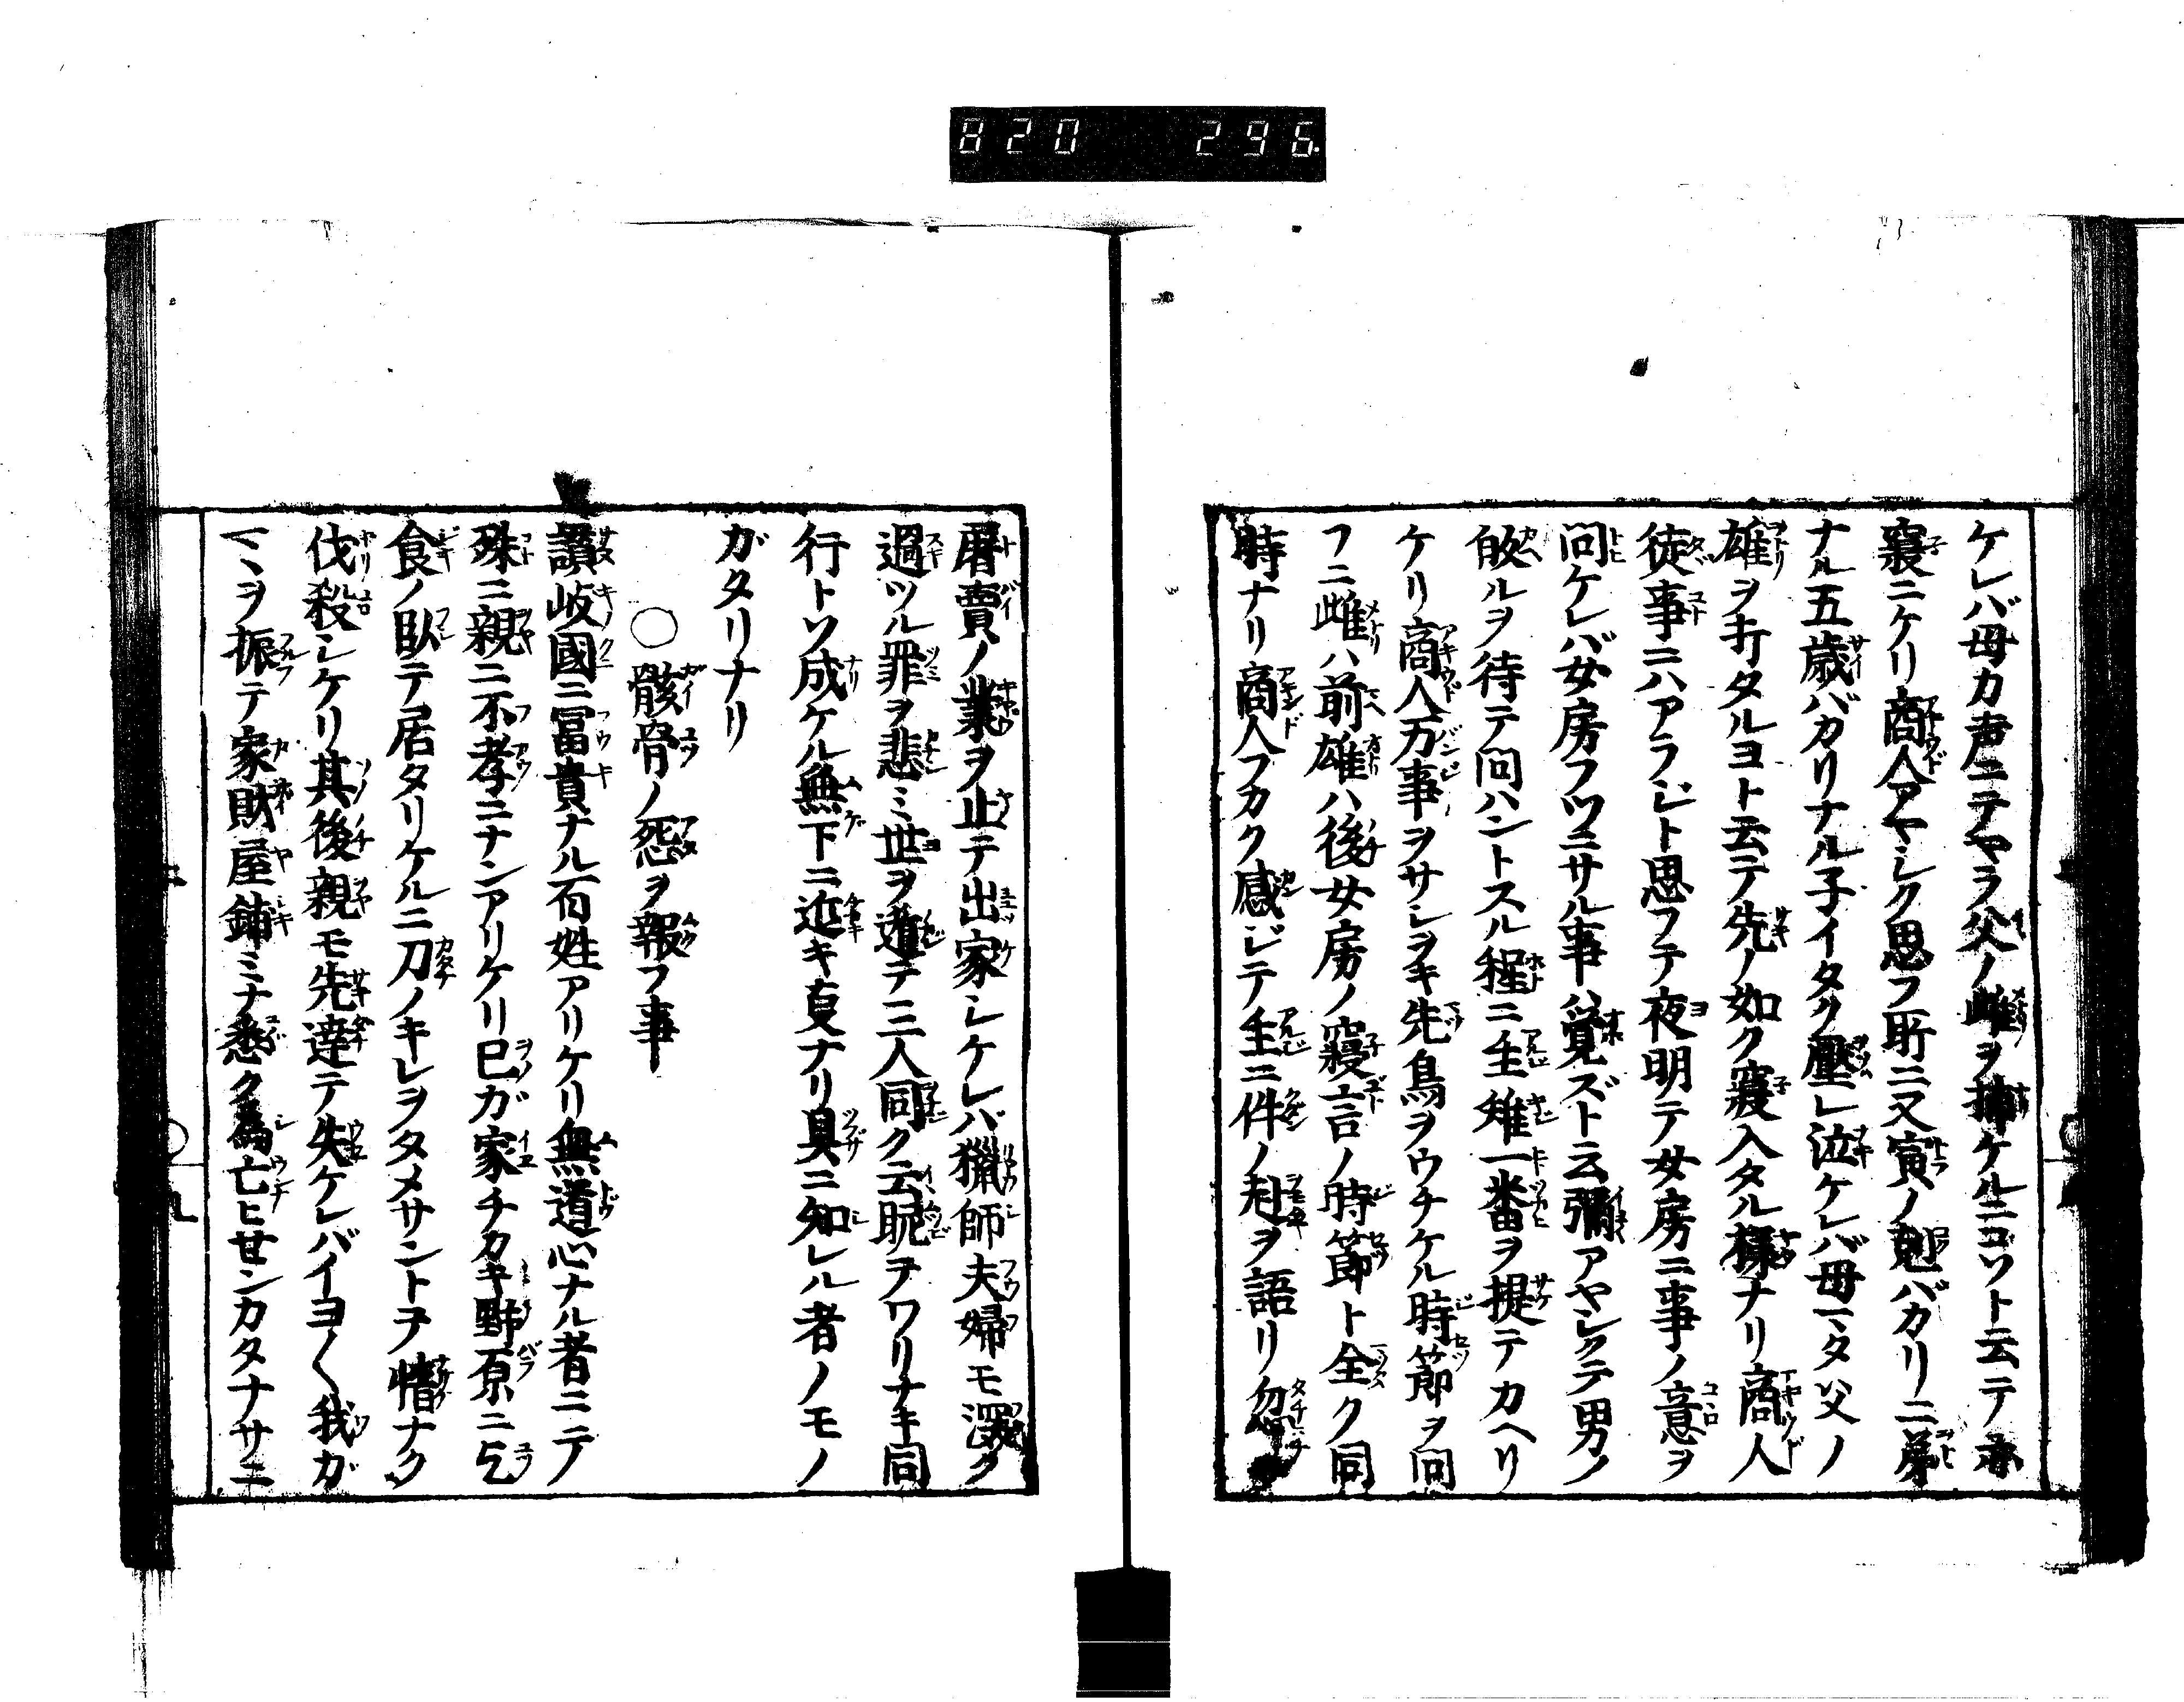 820 296
ケレバ母カ声ニテヤラ父ノ雌ヲ捕ケルニコソト云テ亦
寝ニケリ商人アヤシク思フ所ニ又寅ノ剋バカリニ弟
ナル五歳バカリナル子イタク壓レ泣ケレバ母マタ父ノ
雄ヲ打タルヨト云テ先ノ如ク寝入タル様ナリ商人
徒事ニハアラジト思フテ夜明テ女房ニ事ノ意ヲ
問ケレバ女房フツニサル事ハ覚ズト云彌アヤシクテ男ノ
皈ルヲ待テ問ハントスル程ニ主雉一番ヲ提テカヘリ
ケリ商人万事ヲサシヲキ先鳥ヲウチケル時節ヲ問
フニ雌ハ前雄ハ後女房ノ寝言ノ時節ト全ク同
時ナリ商人フカク感ジテ主ニ件ノ趣ヲ語リ忽
屠賣ノ業ヲ止テ出家シケレバ猟師夫婦モ深ク
過ツル罪ヲ悲ミ世ヲ遁テ三人同ク云眤ヲワリナキ同
行トソ成ケル無下ニ近キ叓ナリ具ニ知レル者ノモノ
ガタリナリ
○骸骨ノ怨ヲ報フ事
讃岐國ニ冨貴ナル百姓アリケリ無道心ナル者ニテ
殊ニ親ニ不孝ニナンアリケリ已ガ家チカキ野原ニ乞
食ノ臥テ居タリケルニ刀ノキレヲタメサントヲ情ナク
伐殺シケリ其後親モ先達テ失ケレバイヨ〱我ガ
マヽヲ振テ家財屋鋪ミナ悉ク為亡ヒせンカタナサニ